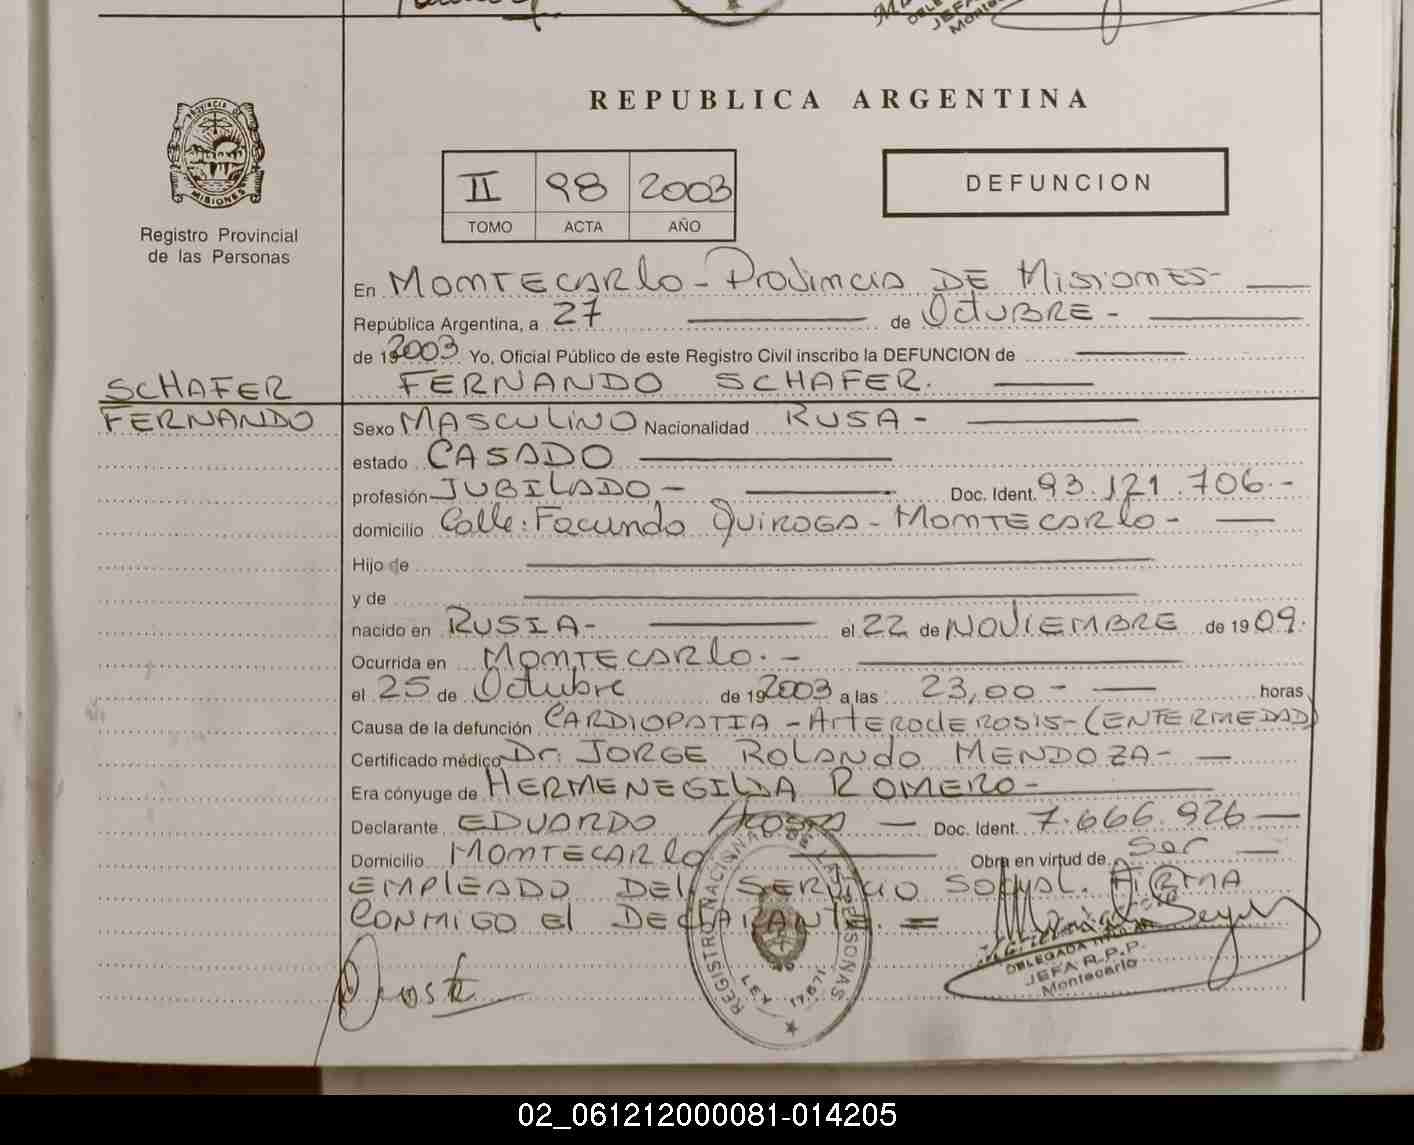 REPUBLICA ARGENTINA
PROVINCIA D
MISIONES
Registro Provincial
de las Personas
II 98 2003
TOMO ACTA AÑO
DEFUNCION
En MONTECARLO - PROVINCIA DE MISIONES -
República Argentina, a 27 de OCTUBRE -
de 192003 Yo, Oficial Público de este Registro Civil inscribo la DEFUNCION de
SCHAFER FERNANDO SCHAFER.
FERNANDO Sexo MASCULINO Nacionalidad RUSA -
estado CASADO
profesión JUBILADO - Doc. Ident. 93.121.706.-
domicilio Calle: Facundo QUIROGA - MONTECARLO -
Hijo de
y de
nacido en RUSIA - el 22 de NOVIEMBRE de 1909.
Ocurrida en MONTECARLO. -
el 25 de Octubre de 192003 a las 23,00 - horas
Causa de la defunción CARDIOPATIA - ArtEROclEROSIS - (ENFERMEDAD)
Certificado médico Dr. JORGE ROLANDO MENDOZA -
Era cónyuge de HERMENEGILDA ROMERO -
Declarante EDUARDO ACOSTA - Doc. Ident. 7.666.926 -
Domicilio MONTECARLO Obra en virtud de Ser
EMPLEADO DEL SERVICIO SOCIAL. FIRMA
CONMIGO El DEClARANTE. =
REGISTRO NACIONAL DE LAS PERSONAS
LEY 17.671
DELEGADA TITULAR
JEFA R.P.P.
Montecarlo
02_061212000081-014205